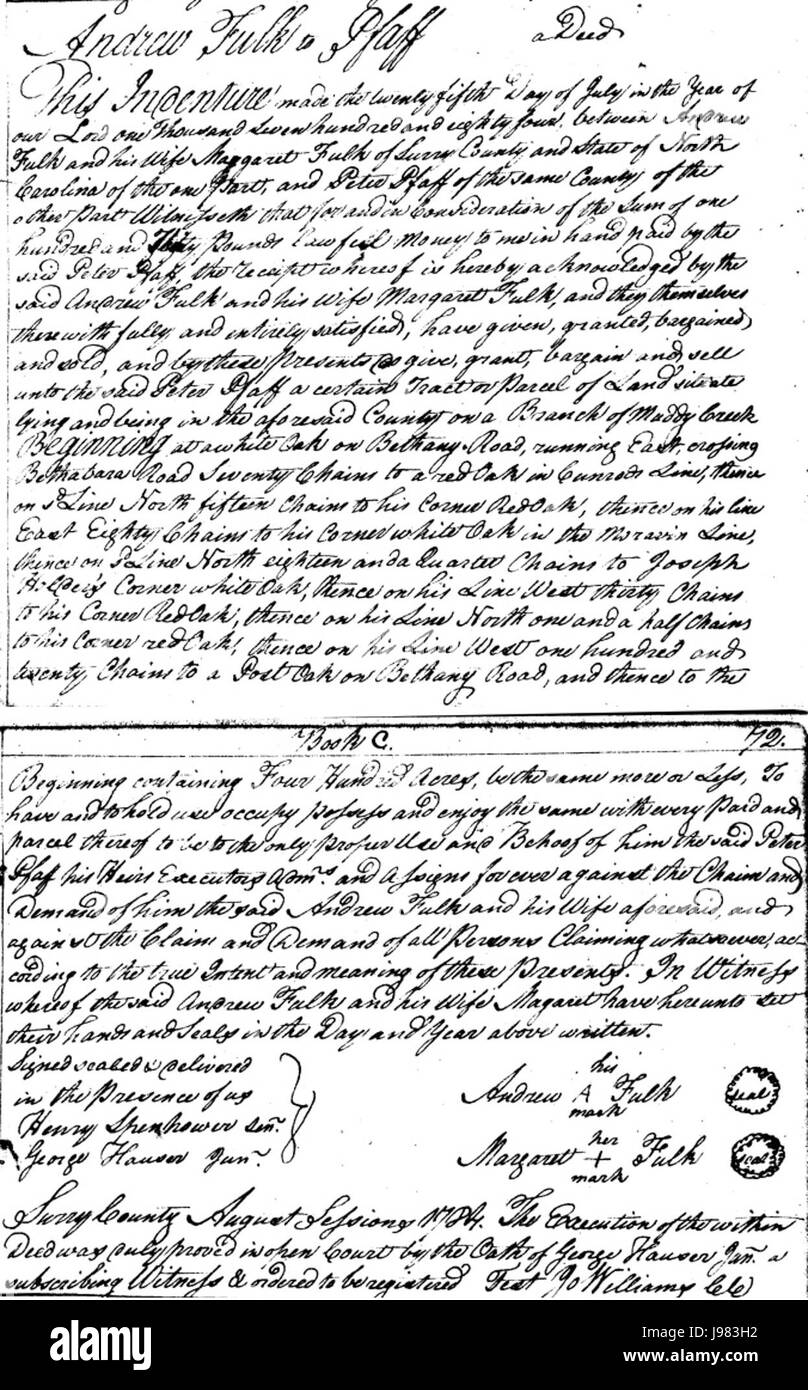 Andrew Fulk to Pfaff a Deed
This Indenture made the twenty fifth Day of July in the Year of
our Lord one Thousand seven hundred and eighty four between Andrew
Fulk and his Wife Maggaret Fulk of Surry County and State of North
Carolina of the one Part, and Peter Pfaff of the same County of the
other Part Witnesseth that for and in Consideration of the Sum of one
hundred and Pounds lawfull Money to me in hand paid by the
said Peter Pfaff, the receipt whereof is hereby acknowledged by the
said Andrew Fulk and his Wife Margaret Fulk, and they themselves
therewith fully and entirely satisfied, have given, granted, bargained,
and sold, and by these Presents do give, grant, bargain and sell
unto the said Peter Pfaff a certain Tract or Parcel of Land situate
lying and being in the aforesaid County on a Branch of Muddy Creek
Beginning at a white Oak on Bethany Road, running East, crossing
Bethabara Road Seventy Chains to a red Oak in Cunrods Line, thence
on sd Line North fifteen Chains to his Corner Red Oak, thence on his line
East Eighty Chains to his Corner white Oak in the Moravin Line,
thence on sd Line North eighteen and a Quarter Chains to Joseph
Holder's Corner white Oak, thence on his Line West thirty Chains
to his Corner Red Oak, thence on his Line North one and a half Chains
to his Corner red Oak, thence on his Line West one hundred and
twenty Chains to a Post Oak on Bethany Road, and thence to the
Book C. 72.
Beginning containing Four Hundred Acres, be the same more or Less, To
have and to hold use occupy possess and enjoy the same with every Pard and
parcel thereof to be to the only proper Use and Behoof of him the said Peter
Pfaff his Heirs Executors Adms. and Assigns for ever against the Claim and
Demand of him the said Andrew Fulk and his Wife aforesaid, and
against the Claim and Demand of all Persons Claiming whatsoever, ac-
cording to the true Intent and meaning of these Presents. In Witness
whereof the said Andrew Fulk and his Wife Magaret have hereunto set
their hands and Seals in the Day and Year above written.
Signed sealed & delivered
in the Presence of us
Henry Spenhower Senr.
George Hauser Junr.
his
Andrew A Fulk seal
mark
her
Margaret + Fulk seal
mark
Surry County August Sessions 1784. The Execution of the within
Deed was duly proved in open Court by the Oath of George Hauser Junr. a
subscribing Witness & ordered to be registered Test Jo Williams
alamy
Image ID: J983H2
www.alamy.com